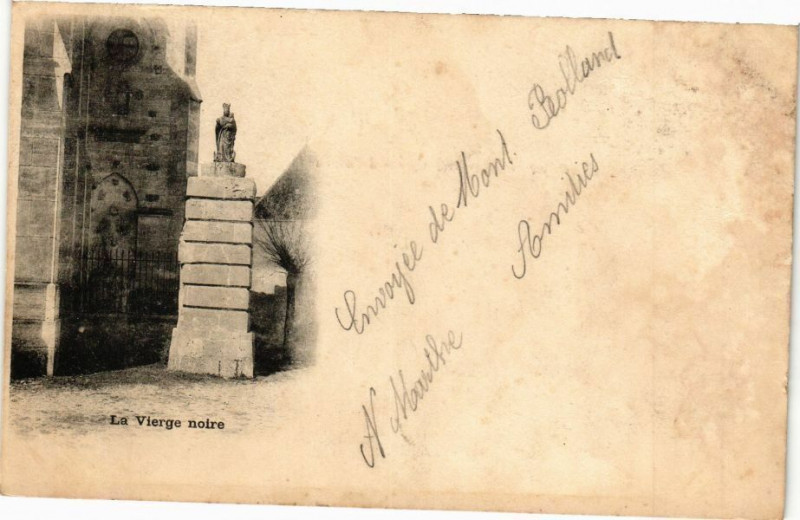 La Vierge noire
Envoyée de Mont. Rolland
Amitiés
N Marthe